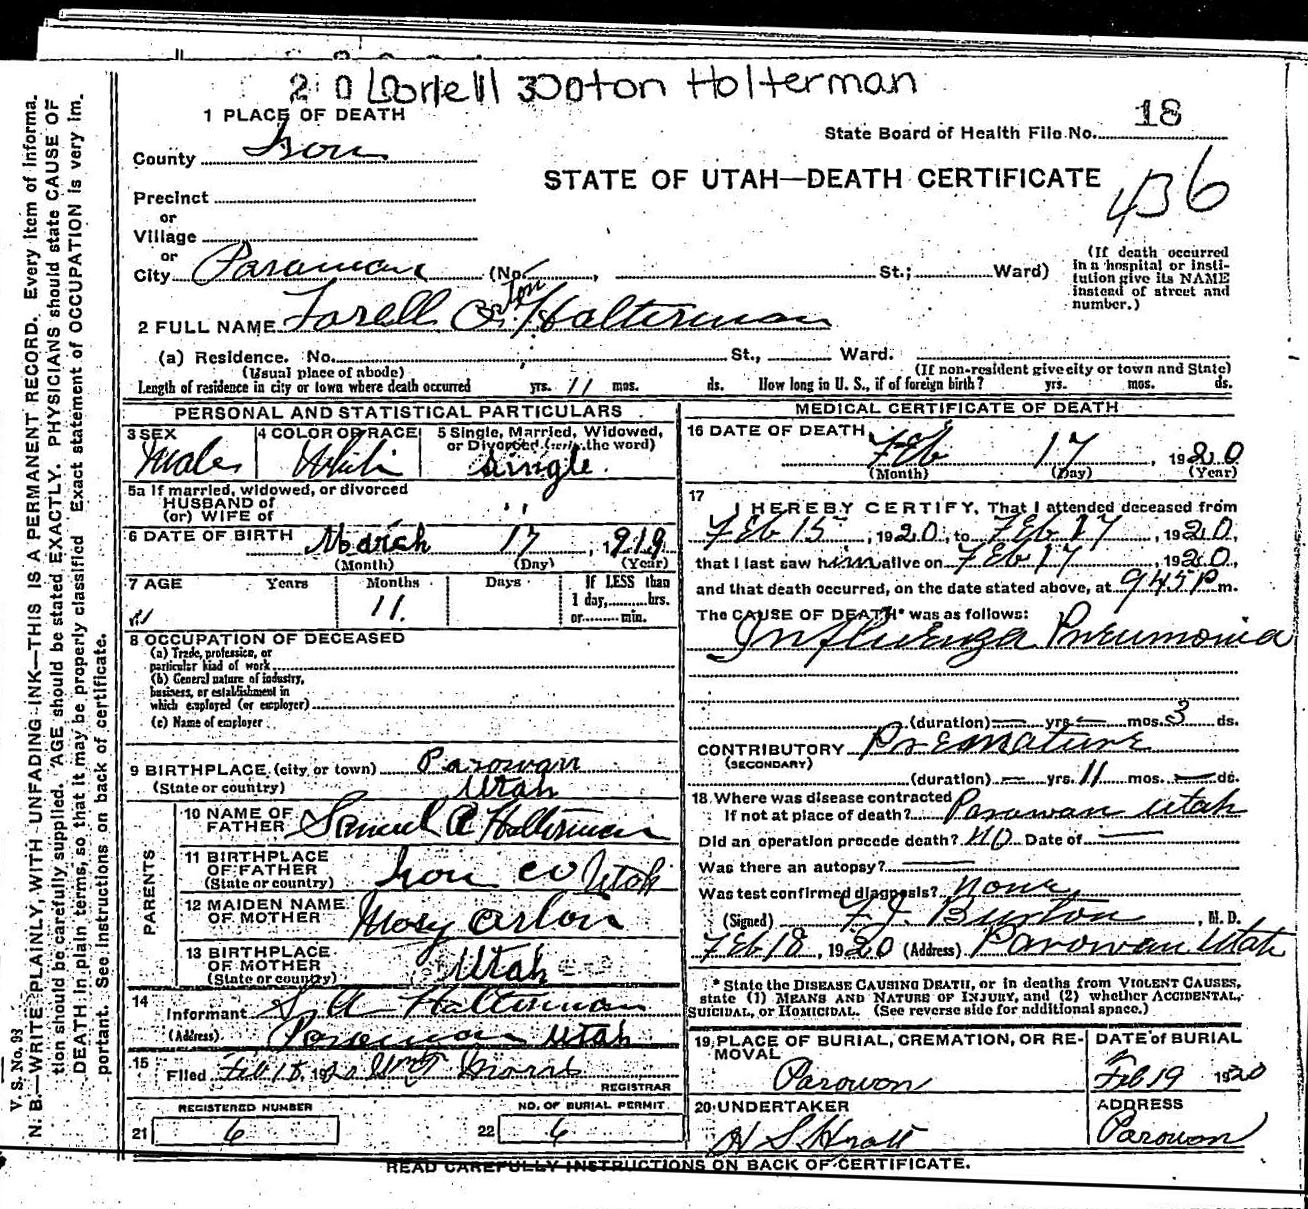 Holterman
1 PLACE OF DEATH
18
State Board of Health File No.
County Iron
STATE OF UTAH—DEATH CERTIFICATE
436
Precinct
or
Village
or
City Parowan (No. , St.; Ward)
(If death occurred
in a hospital or insti-
tution give its NAME
instead of street and
number.)
ton
2 FULL NAME Lorell Or Halterman
(a) Residence. No. St., Ward.
(Usual place of abode) (If non-resident give city or town and State)
Length of residence in city or town where death occurred yrs. 11 mos. ds. How long in U. S., if of foreign birth? yrs. mos. ds.
PERSONAL AND STATISTICAL PARTICULARS
3 SEX 4 COLOR OR RACE 5 Single, Married, Widowed,
or Divorced (write the word)
Male White Single.
5a If married, widowed, or divorced
HUSBAND of
(or) WIFE of
6 DATE OF BIRTH March 17, 1919
(Month) (Day) (Year)
7 AGE Years Months Days If LESS than
11. 1 day, hrs.
or min.
8 OCCUPATION OF DECEASED
(a) Trade, profession, or
particular kind of work
(b) General nature of industry,
business, or establishment in
which employed (or employer)
(c) Name of employer
9 BIRTHPLACE (city or town) Parowan
(State or country) Utah
10 NAME OF
FATHER Samuel A Halterman
11 BIRTHPLACE
OF FATHER Iron co Utah
(State or country)
12 MAIDEN NAME
OF MOTHER Mary Orton
13 BIRTHPLACE
OF MOTHER Utah
(State or country)
14
Informant S A Halterman
(Address) Parowan Utah
15
Filed Feb 18, 19 Wm Morris
REGISTRAR
REGISTERED NUMBER NO. OF BURIAL PERMIT
21 6 22 6
MEDICAL CERTIFICATE OF DEATH
16 DATE OF DEATH
Feb 17, 1920
(Month) (Day) (Year)
17
I HEREBY CERTIFY, That I attended deceased from
Feb 15, 1920, to Feb 17, 1920,
that I last saw him alive on Feb 17, 1920,
and that death occurred, on the date stated above, at 945 P m.
The CAUSE OF DEATH* was as follows:
Influenza Pneumonia
(duration) — yrs. — mos. 3 ds.
CONTRIBUTORY Premature
(SECONDARY)
(duration) — yrs. 11 mos. — ds.
18 Where was disease contracted
If not at place of death? Parowan Utah
Did an operation precede death? No Date of —
Was there an autopsy? —
Was test confirmed diagnosis? None
(Signed) F. J. Burton, M. D.
Feb 18, 1920 (Address) Parowan Utah
* State the DISEASE CAUSING DEATH, or in deaths from VIOLENT CAUSES,
state (1) MEANS AND NATURE OF INJURY, and (2) whether ACCIDENTAL,
SUICIDAL, or HOMICIDAL. (See reverse side for additional space.)
19 PLACE OF BURIAL, CREMATION, OR RE-
MOVAL
Parowan
DATE of BURIAL
Feb 19 1920
20 UNDERTAKER
H S Hyatt
ADDRESS
Parowan
READ CAREFULLY INSTRUCTIONS ON BACK OF CERTIFICATE.
V. S. No. 93
N. B.—WRITE PLAINLY, WITH UNFADING INK—THIS IS A PERMANENT RECORD. Every item of informa-
tion should be carefully supplied. AGE should be stated EXACTLY. PHYSICIANS should state CAUSE OF
DEATH in plain terms, so that it may be properly classified Exact statement of OCCUPATION is very im-
portant. See instructions on back of certificate.